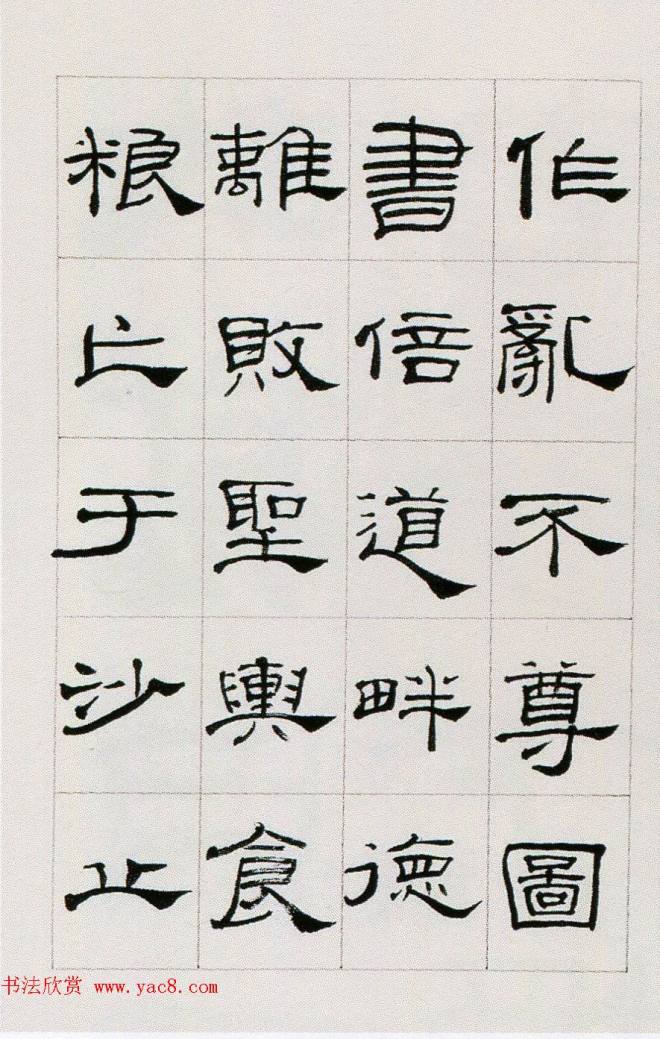 作亂不尊圖
書倍道畔德
離敗聖輿食
粮亡于沙丘
书法欣赏 www.yac8.com